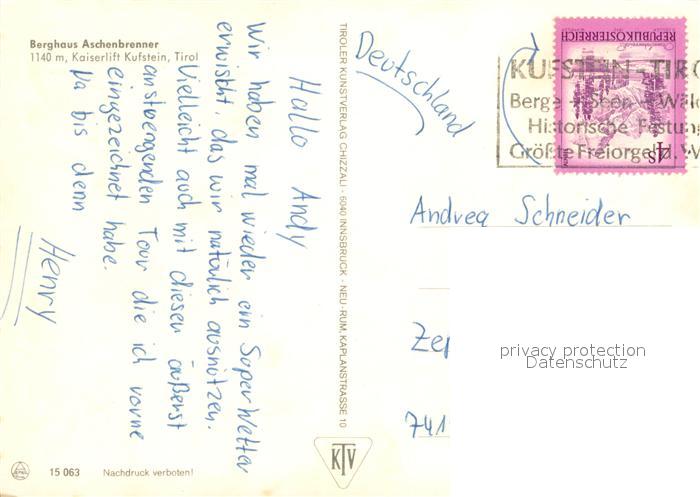 Berghaus Aschenbrenner
1140 m, Kaiserlift Kufstein, Tirol
Hallo Andy
Wir haben mal wieder ein Super Wetter
erwischt, das wir natürlich ausnützen.
Vielleicht auch mit dieser äußerst
anstrengenden Tour die ich vorne
eingezeichnet habe.
Ja bis denn
Henry
15 063 Nachdruck verboten!
TIROLER KUNSTVERLAG CHIZZALI · 6040 INNSBRUCK - NEU-RUM, KAPLANSTRASSE 10
KTV
Deutschland
REPUBLIKÖSTERREICH
4S
KUFSTEIN - TIRO
Berge - Seen - Wäld
Historische Festung
Größte Freiorgel d. W
Andrea Schneider
Zep
741
privacy protection
Datenschutz